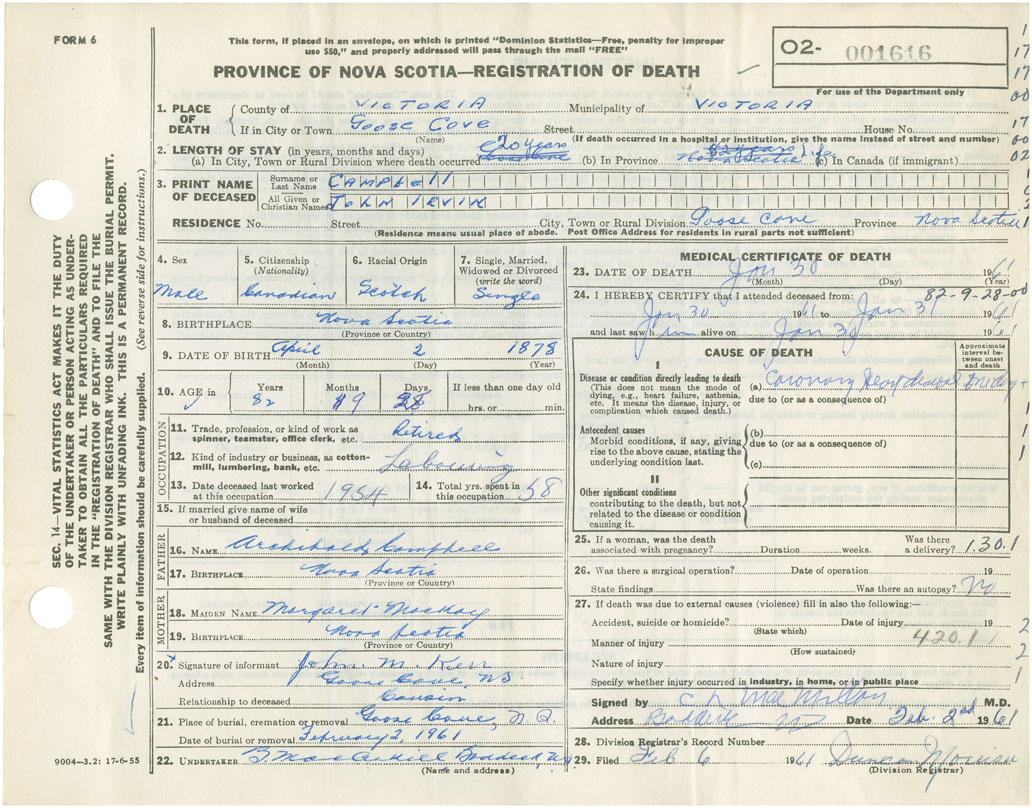 FORM 6
This form, if placed in an envelope, on which is printed "Dominion Statistics—Free, penalty for improper
use $50," and properly addressed will pass through the mail "FREE"
PROVINCE OF NOVA SCOTIA—REGISTRATION OF DEATH
O2- 001616
For use of the Department only
1. PLACE OF DEATH
County of VICTORIA Municipality of VICTORIA
If in City or Town Goose Cove Street House No.
(Name) (If death occurred in a hospital or institution, give the name instead of street and number)
2. LENGTH OF STAY (in years, months and days)
(a) In City, Town or Rural Division where death occurred 20 years (b) In Province 82 years Nova Scotia Life (c) In Canada (if immigrant)
3. PRINT NAME OF DECEASED
Surname or Last Name CAMPbEll
All Given or Christian Names JOHN IRVIN
RESIDENCE No. Street City, Town or Rural Division Goose Cove Province Nova Scotia
(Residence means usual place of abode. Post Office Address for residents in rural parts not sufficient)
4. Sex Male
5. Citizenship (Nationality) Canadian
6. Racial Origin Scotch
7. Single, Married, Widowed or Divorced (write the word) Single
8. BIRTHPLACE Nova Scotia
(Province or Country)
9. DATE OF BIRTH April 2 1878
(Month) (Day) (Year)
10. AGE in Years 82 Months 9 Days 28 If less than one day old hrs. or min.
OCCUPATION
11. Trade, profession, or kind of work as spinner, teamster, office clerk, etc. Retired
12. Kind of industry or business, as cotton-mill, lumbering, bank, etc. Labouring
13. Date deceased last worked at this occupation 1954
14. Total yrs. spent in this occupation 58
15. If married give name of wife or husband of deceased
FATHER
16. NAME Archibald Campbell
17. BIRTHPLACE Nova Scotia
(Province or Country)
MOTHER
18. MAIDEN NAME Margaret MacKay
19. BIRTHPLACE Nova Scotia
(Province or Country)
20. Signature of informant John M. Kerr
Address Goose Cove, NS
Relationship to deceased Cousin
21. Place of burial, cremation or removal Goose Cove, N.S.
Date of burial or removal February 2, 1961
22. UNDERTAKER Baddeck, NS
(Name and address)
9004-3.2: 17-6-55
MEDICAL CERTIFICATE OF DEATH
23. DATE OF DEATH Jan 30 1961
(Month) (Day) (Year)
24. I HEREBY CERTIFY that I attended deceased from: 82-9-28-00
Jan 30 1961 to Jan 31 1961
and last saw him alive on Jan 30 1961
CAUSE OF DEATH
Approximate interval between onset and death
I
Disease or condition directly leading to death
(This does not mean the mode of dying, e.g., heart failure, asthenia, etc. It means the disease, injury, or complication which caused death.)
(a) Coronary Heart disease
due to (or as a consequence of)
Antecedent causes
Morbid conditions, if any, giving rise to the above cause, stating the underlying condition last.
(b)
due to (or as a consequence of)
(c)
II
Other significant conditions
contributing to the death, but not related to the disease or condition causing it.
25. If a woman, was the death associated with pregnancy? Duration weeks. Was there a delivery? 1.30.1
26. Was there a surgical operation? Date of operation 19
State findings Was there an autopsy? No
27. If death was due to external causes (violence) fill in also the following:—
Accident, suicide or homicide? Date of injury 19
(State which)
Manner of injury 420.1
(How sustained)
Nature of injury
Specify whether injury occurred in industry, in home, or in public place
Signed by C L MacMillan M.D.
Address Baddeck NS Date Feb. 2nd 1961
28. Division Registrar's Record Number
29. Filed Feb 6 1961 Duncan
(Division Registrar)
SEC. 14—VITAL STATISTICS ACT MAKES IT THE DUTY
OF THE UNDERTAKER OR PERSON ACTING AS UNDER-
TAKER TO OBTAIN ALL THE PARTICULARS REQUIRED
IN THE "REGISTRATION OF DEATH" AND TO FILE THE
SAME WITH THE DIVISION REGISTRAR WHO SHALL ISSUE THE BURIAL PERMIT.
WRITE PLAINLY WITH UNFADING INK. THIS IS A PERMANENT RECORD.
Every item of information should be carefully supplied. (See reverse side for instructions.)